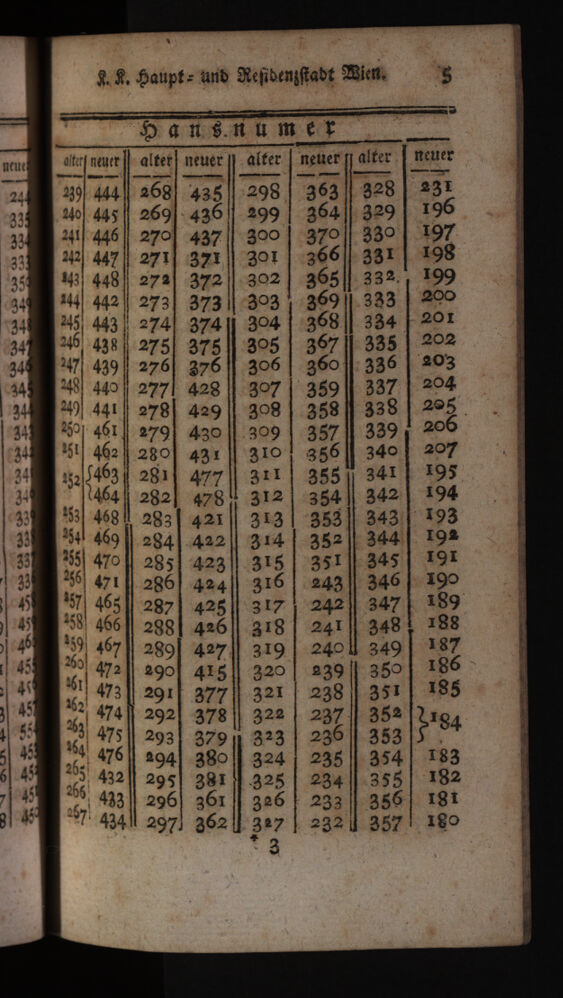 K. K. Haupt- und Residenzstadt Wien. 5
Hausnumer
alter neuer alter neuer alter neuer alter neuer
239 444 268 435 298 363 328 231
240 445 269 436 299 364 329 196
241 446 270 437 300 370 330 197
242 447 271 371 301 366 331 198
243 448 272 372 302 365 332 199
244 442 273 373 303 369 333 200
245 443 274 374 304 368 334 201
246 438 275 375 305 367 335 202
247 439 276 376 306 360 336 203
248 440 277 428 307 359 337 204
249 441 278 429 308 358 338 205
250 461 279 430 309 357 339 206
251 462 280 431 310 356 340 207
252 {463 281 477 311 355 341 195
{464 282 478 312 354 342 194
253 468 283 421 313 353 343 193
254 469 284 422 314 352 344 192
255 470 285 423 315 351 345 191
256 471 286 424 316 243 346 190
257 465 287 425 317 242 347 189
258 466 288 426 318 241 348 188
259 467 289 427 319 240 349 187
260 472 290 415 320 239 350 186
261 473 291 377 321 238 351 185
262 474 292 378 322 237 352 }184
263 475 293 379 323 236 353
264 476 294 380 324 235 354 183
265 432 295 381 325 234 355 182
266 433 296 361 326 233 356 181
267 434 297 362 327 232 357 180
* 3